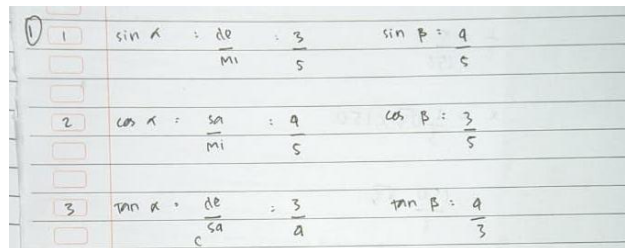 ① 1 sin α : de/mi : 3/5 sin β : 4/5
2 cos α : sa/mi : 4/5 cos β : 3/5
3 tan α : de/sa : 3/4 tan β : 4/3